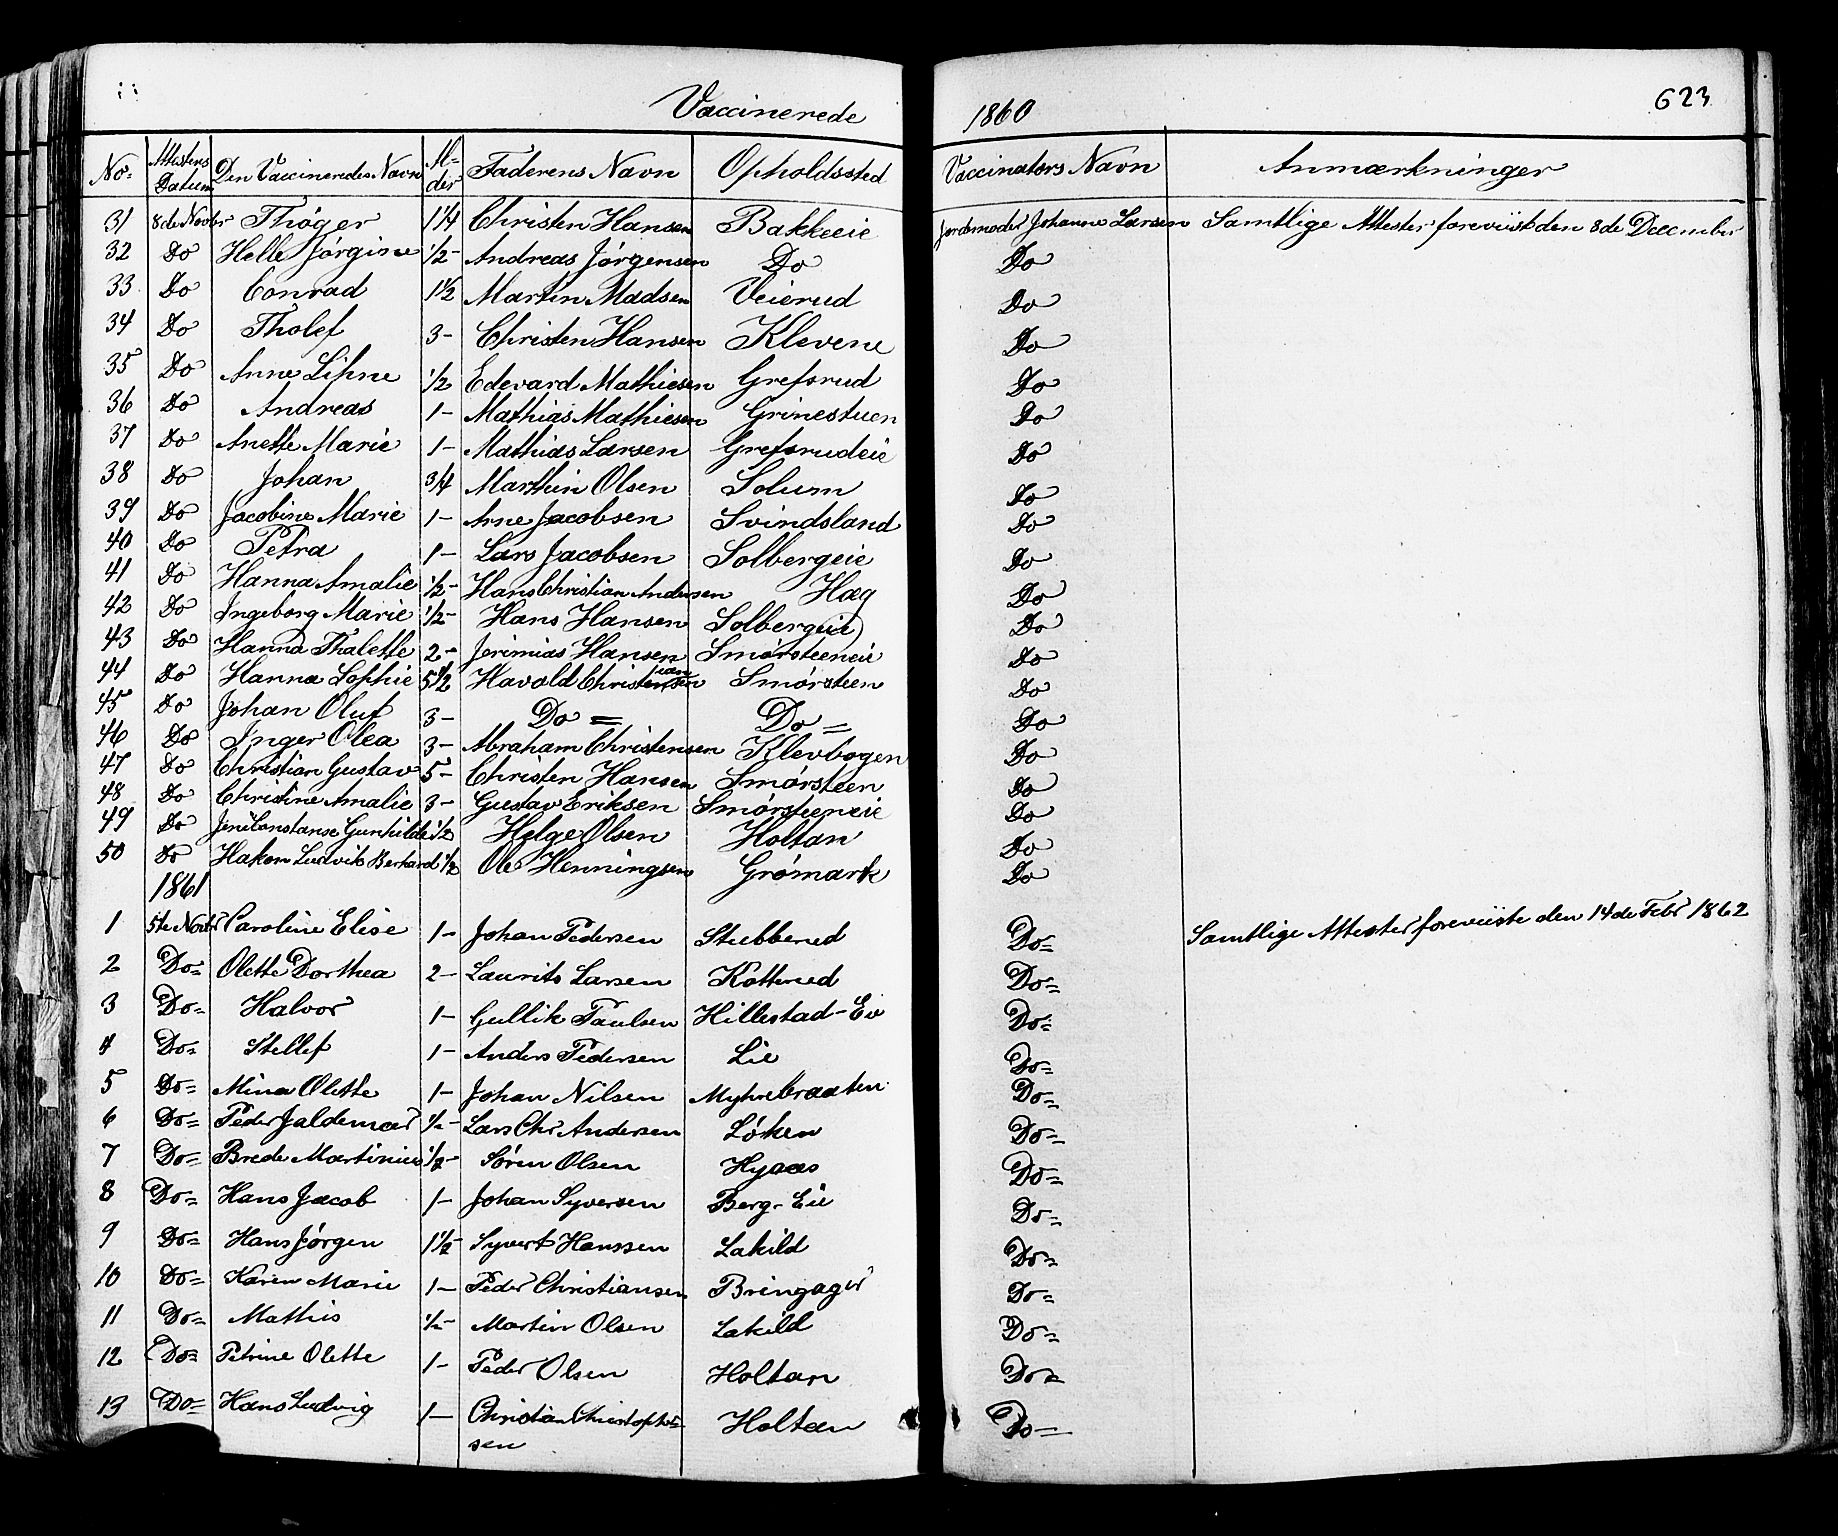 Vaccinerede 1860 623
No. Attestens Datum Den Vaccineredes Navn Alder Faderens Navn Opholdssted Vaccinators Navn Anmærkninger
31 8de Novbr Thøger 1 1/4 Christen Hansen Bakkeeie Jordemoder Johanne Larsen Samtlige Attester foreviist den 8de December
32 Do Helle Jørgine 1/2- Andreas Jørgensen Do Do
33 Do Conrad 1 1/2 Martin Madsen Veierud Do
34 Do Tholef 3- Christen Hansen Klevene Do
35 Do Anne Liħne 1/2 Edevard Mathiesen Grefsrud Do
36 Do Andreas 1- Mathias Mathiesen Grinestuen Do
37 Do Anette Marie 1- Mathias Larsen Grefsrudeie Do
38 Do Johan 3/4 Marthin Olsen Solum Do
39 Do Jacobine Marie 1- Arne Jacobsen Svindsland Do
40 Do Petra 1- Lars Jacobsen Solbergeie Do
41 Do Hanna Amalie 1/2- Hans Christian Andersen Hæg Do
42 Do Ingeborg Marie 1/2- Hans Hansen Solbergeie Do
43 Do Hanna Thalette 2- Jerimias Hansen Smørsteeneie Do
44 Do Hanna Sophie 5 1/2 Havold Christensen Smørsteen Do
45 Do Johan Oluf 3- Do = Do = Do
46 Do Inger Olea 3- Abraham Christensen Klevbogen Do
47 Do Christian Gustav 5- Christen Hansen Smørsteen Do
48 Do Christine Amalie 3- Gustav Eriksen Smørsteeneie Do
49 Do Jene Constanse Gunhilde 1/2 Helge Olsen Holtan Do
50 Do Hakon Ludvik Berhard 1/2 Ole Henningsen Grømark Do
1861
1 5te Novbr Caroline Elise 1- Johan Pedersen Stubberud Do= Samtlige Attester foreviiste den 14de Febr 1862
2 Do= Olette Dorthea 2- Laurits Larsen Kotterud Do=
3 Do= Halvor 1- Gullik Paulsen Hillestad-Eie Do=
4 Do= Stellef 1- Anders Pedersen Lie Do=
5 Do= Mina Olette 1- Johan Nilsen Myhrebraaten Do=
6 Do= Peder Jaldemar 1/2- Lars Chr Andersen Løken Do=
7 Do= Brede Martinius 1/2- Søren Olsen Hyaas Do=
8 Do= Hans Jacob 1- Johan Syversen Berg-Eie Do=
9 Do= Hans Jørgen 1 1/2- Syvert Hanssen Lakild Do=
10 Do= Karen Marie 1- Peder Christiansen Bringager Do=
11 Do= Mathis 1/2- Martin Olsen Lakild Do=
12 Do= Petrine Olette 1- Peder Olsen Holtan Do=
13 Do= Hans Ludvig 1- Christian Christophersen Holtan Do=